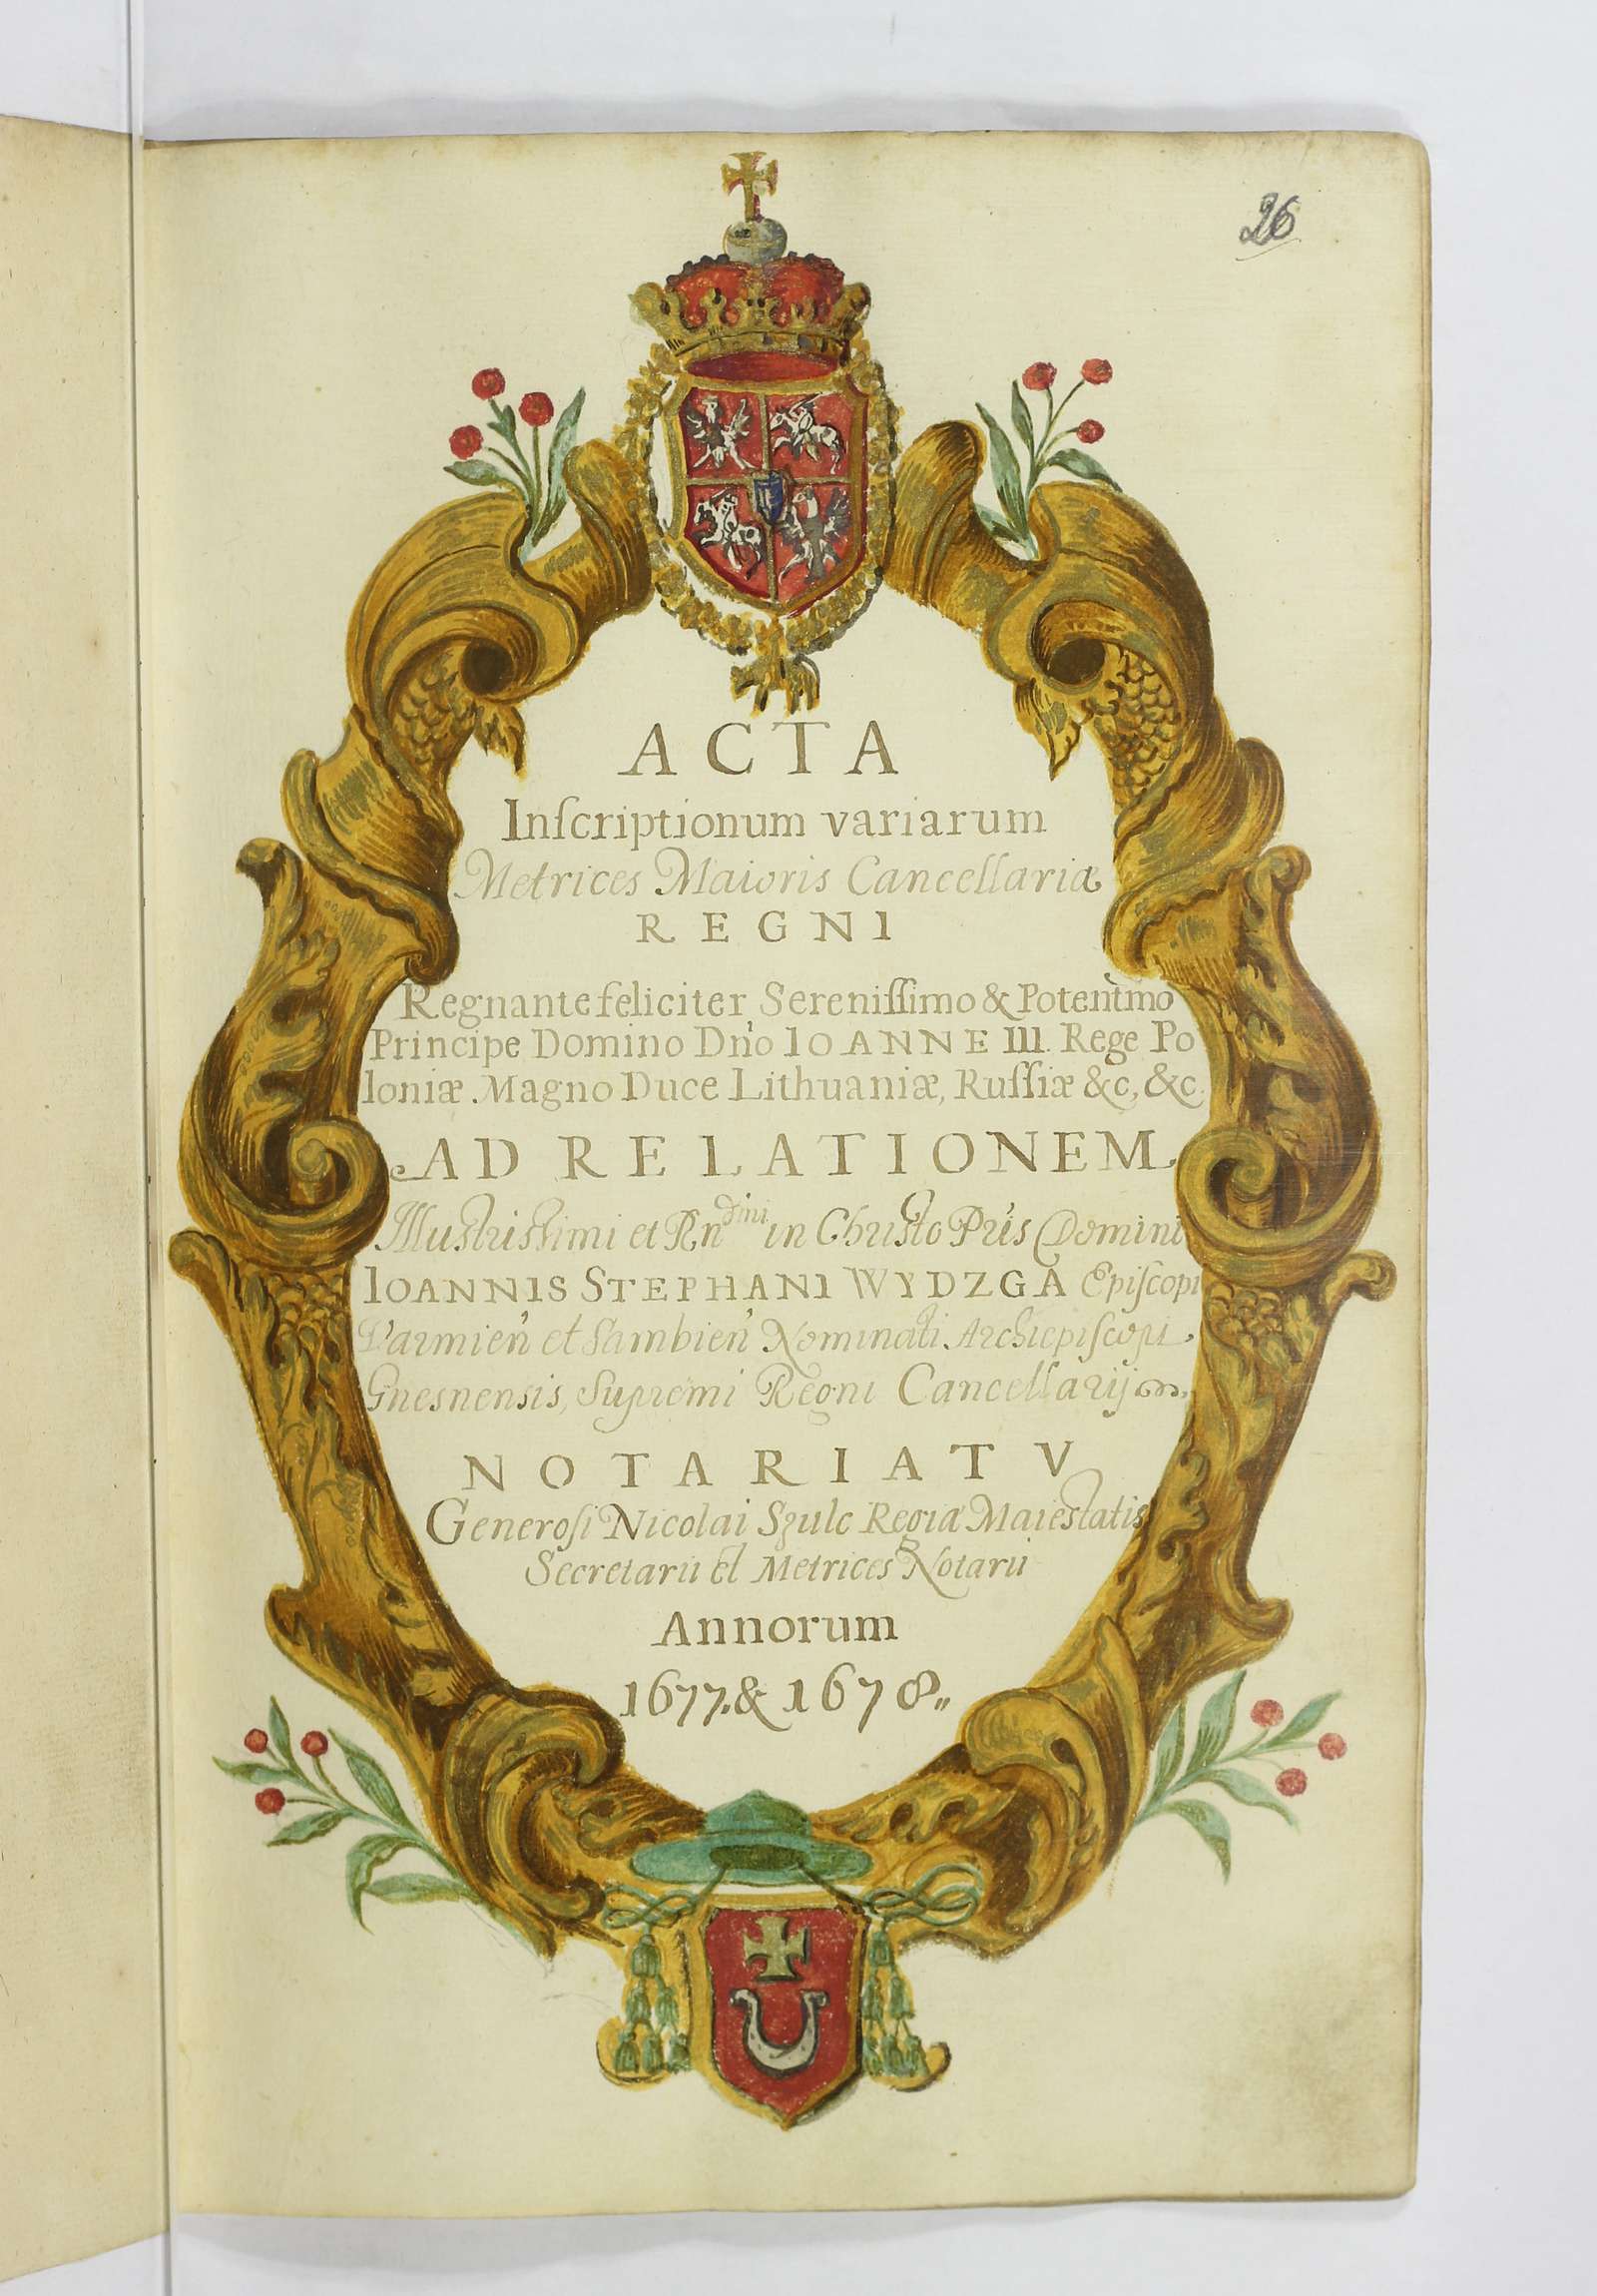 26
ACTA
Inſcriptionum variarum
Metrices Maioris Cancellariæ
REGNI
Regnante feliciter Sereniſſimo & Potentmo
Principe Domino Dn̓o IOANNE III. Rege Po
loniæ Magno Duce Lithuaniæ, Ruſſiæ &c, &c.
AD RELATIONEM
Illustrissimi et Rndmi in Christo Pr̓is Domini
IOANNIS STEPHANI WYDZGA Epiſcopi
Varmien̓ et Sambien̓ Nominati Archiepiſcopi
Gnesnensis, Supremi Regni Cancellarij
NOTARIATV
Generoſi Nicolai Szulc Regiæ Maiestatis
Secretarii et Metrices Notarii
Annorum
1677. & 1678„